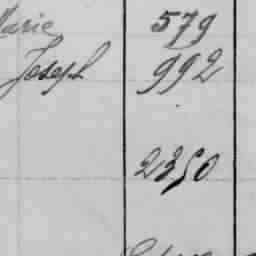 Marie 579
Joseph 992
2350